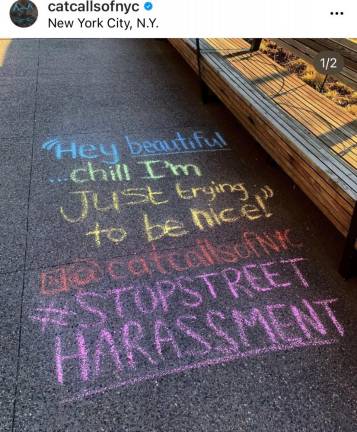 catcallsofnyc
New York City, N.Y.
1/2
"Hey beautiful
...chill I'm
Just trying
to be nice!"
@catcallsofNYC
#STOPSTREET
HARASSMENT